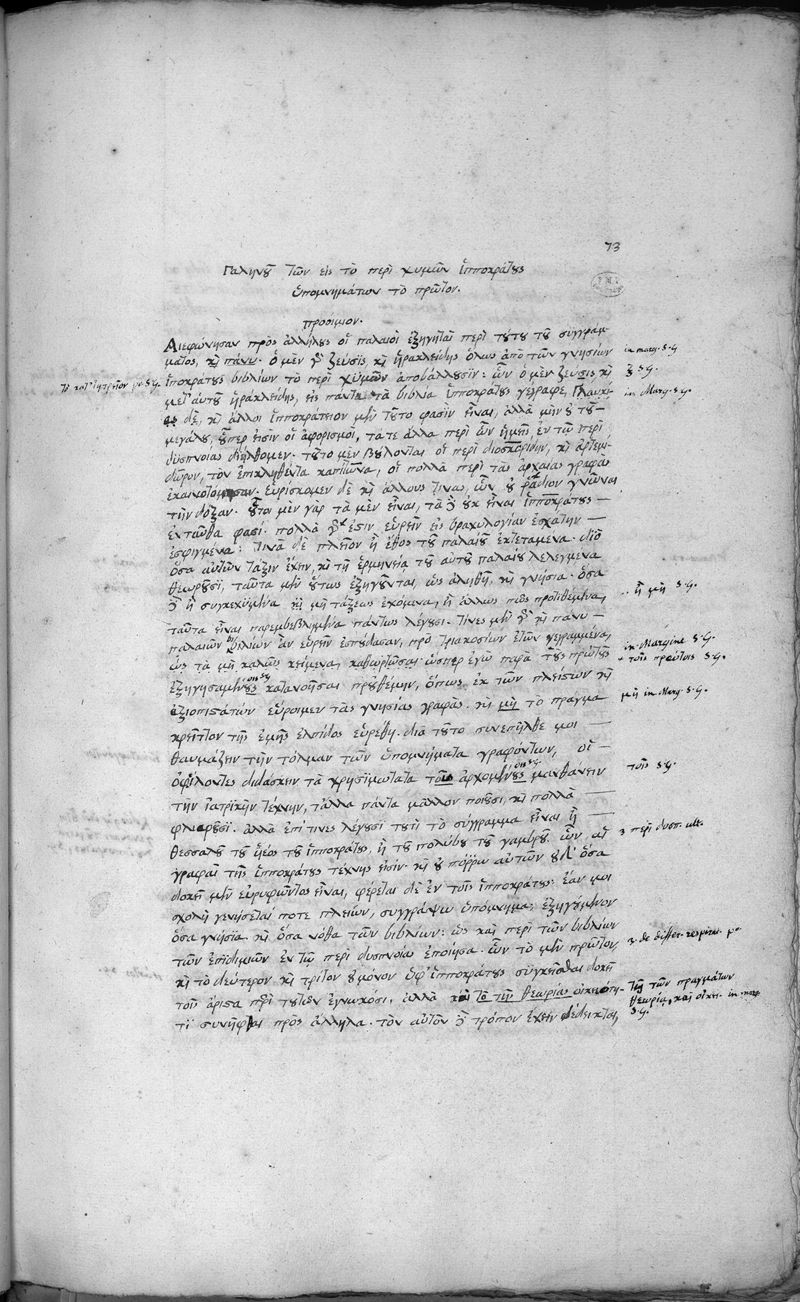 73
Γαληνοῦ τῶν εἰς τὸ περὶ χυμῶν ἱπποκράτους
ὑπομνημάτων τὸ πρῶτον.
προοίμιον.
Διεφώνησαν πρὸς ἀλλήλους οἱ παλαιοὶ ἐξηγηταὶ περὶ τούτου τοῦ συγγράμ-
ματος, καὶ πάνυ. ὁ μὲν γὰρ ζεῦξις καὶ ἡρακλείδης ὅλως ἀπὸ τῶν γνησίων
ἱπποκράτους βιβλίων τὸ περὶ χυμῶν ἀποβάλλουσιν: ὧν ὁ μὲν ζεῦξις καὶ
μετ' αὐτοῦ ἡρακλείδης, εἰς πάντα τὰ βιβλία ἱπποκράτους γέγραφε, Γλαυκί-
ας δὲ, καὶ ἄλλοι ἱπποκράτειον μὲν τοῦτο φασὶν εἶναι, ἀλλὰ μὴν οὐ τοῦ
μεγάλου, οὗπερ εἰσὶν οἱ ἀφορισμοὶ, τά τε ἄλλα περὶ ὧν ἡμεῖς ἐν τῷ περὶ
δυσπνοίας διήλθομεν. τοῦτο μὲν βούλονται οἱ περὶ διοσκορίδην, καὶ ἀρτεμί-
δωρον, τὸν ἐπικληθέντα καπίτωνα, οἳ πολλὰ περὶ τὰς ἀρχαίας γραφὰς
ἐκαινοτόμησαν. εὑρίσκομεν δὲ καὶ ἄλλους τινὰς, ὧν οὐ ῥάδιον γνῶναι
τὴν δόξαν. οὗτοι μὲν γὰρ τὰ μὲν εἶναι, τὰ δὲ οὐκ εἶναι ἱπποκράτους
ἐνταῦθα φασί. πολλὰ γάρ ἐστιν εὑρεῖν εἰς βραχυλογίαν ἐσχάτην
ἐσφιγμένα: τινὰ δὲ πλεῖον ἢ ἔθος τοῦ παλαιοῦ ἐκτεταμένα. διὸ
ὅσα αὐτῶν τάξιν ἔχειν, καὶ τῇ ἑρμηνείᾳ τοῦ αὐτοῦ παλαιοῦ λελεγμένα
θεωροῦσι, ταῦτα μὲν οὕτως ἐξηγοῦνται, ὡς ἀληθῆ, καὶ γνήσια. ὅσα
δὲ ἢ συγκεχυμένα καὶ μὴ τάξεως ἐχόμενα, ἢ ἄλλως πως προτιθέμενα,
ταῦτα εἶναι παρεμβεβλημένα πάντως λέγουσι. τινὲς μὲν γὰρ καὶ πάνυ
παλαιῶν βιβλίων ἂν εὑρεῖν ἐσπούδασαν, πρὸ τριακοσίων ἐτῶν γεγραμμένα,
ὡς τὰ μὴ καλῶς κείμενα, καθορτῶσαι ὥσπερ ἐγὼ παρὰ τοὺς πρώτους
ἐξηγησαμένους κατανοῆσαι προὐθέμην, ὅπως ἐκ τῶν πλείστων καὶ
ἀξιοπιστάτων εὕροιμεν τὰς γνησίας γραφάς. καὶ μὴ τὸ πρᾶγμα
κρεῖττον τῆς ἐμῆς ἐλπίδος εὑρέθη. διὰ τοῦτο συνεπῆλθε μοι
θαυμάζειν τὴν τόλμαν τῶν ὑπομνήματα γραφόντων, οἳ
ὀφείλοντες διδάσκειν τὰ χρησιμώτατα τοὺς ἀρχομένους μανθάνειν
τὴν ἰατρικὴν τέχνην, τἄλλα πάντα μᾶλλον ποιοῦσι, καὶ πολλὰ
φλυαροῦσι. ἀλλὰ ἐπί τινες λέγουσι τουτὶ τὸ σύγγραμμα εἶναι ἢ
θεσσαλοῦ τοῦ υἱέος τοῦ ἱπποκράτους, ἢ τοῦ πολύβου τοῦ γαμβροῦ. ὧν, αἱ
γραφαὶ τῆς ἱπποκράτους τέχνης εἰσίν. καὶ οὐ πόῤῥω αὐτῶν οὐδ' ὅσα
δοκεῖ μὲν εὐρυφῶντος εἶναι, φέρεται δὲ ἐν τοῖς ἱπποκράτους. ἐάν μοι
σχολὴ γενήσεταί ποτε πλείων, συγγράψω ὑπόμνημα, ἐξηγούμενον
ὅσα γνήσια καὶ ὅσα νόθα τῶν βιβλίων: ὡς καὶ περὶ τῶν βιβλίων
τῶν ἐπιδημιῶν ἐν τῷ περὶ δυσπνοίας ἐποίησα. ὧν τὸ μὲν πρῶτον,
καὶ τὸ δεύτερον καὶ τρίτον οὐ μόνον ὑφ' ἱπποκράτους συγκεῖσθαι δοκεῖ
τοῖς ἄριστα περὶ τούτων ἐγνωκόσι, ἀλλὰ καὶ τὸ τῆς θεωρίας οἰκειότη-
τι συνῆφθαι πρὸς ἄλληλα. τὸν αὐτὸν δὲ τρόπον ἔχειν δέδεικται,
in marg. s.G
s.G.
in Marg. s.G.
ἢ μὴ s.G.
in Margine s.G.
τοῖς πρώτοις s.G.
μὴ in Marg. s.G.
τοῖς s.G.
3 περὶ δυσπ. ult.
τῇ τῶν πραγμάτων
θεωρίᾳ, καὶ οἰκει. in marg
s.G.